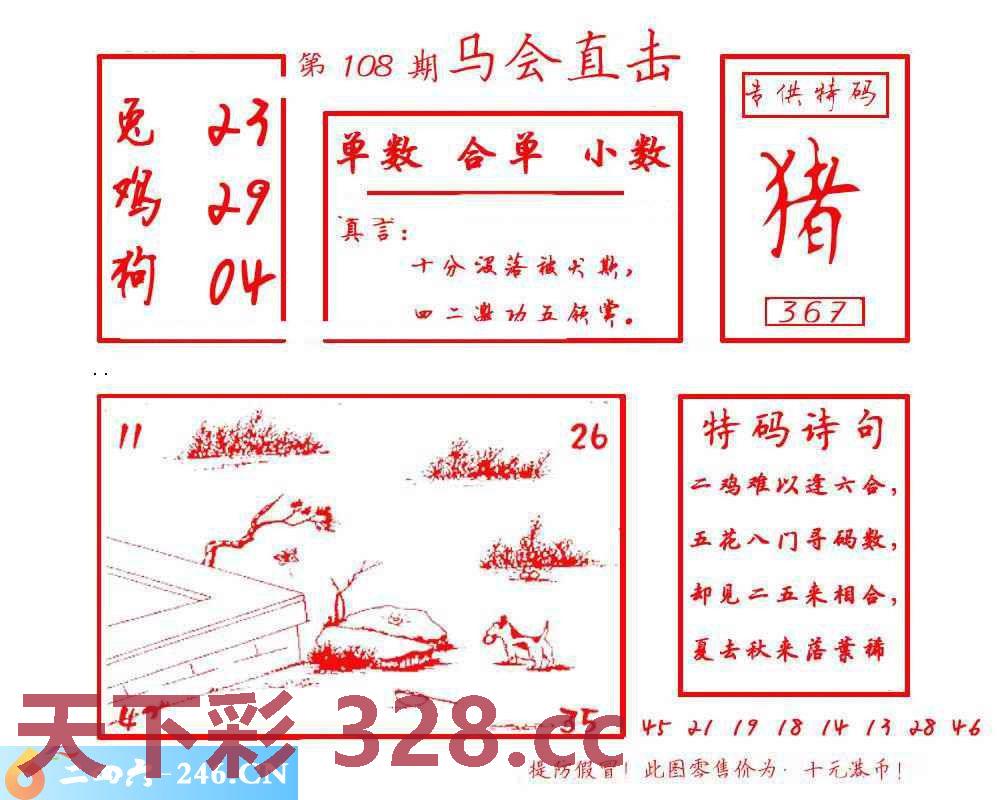 第 108 期 马会直击
兔 23
鸡 29
狗 04
单数 合单 小数
真言:
十分没落被犬欺,
四二邀功五领赏。
专供特码
猪
367
11 26
35
特码诗句
二鸡难以逢六合,
五花八门寻码数,
却见二五来相合,
夏去秋来落葉稀
45 21 19 18 14 13 28 46
天下彩 328.cc
二四六-246.CN
提防假冒! 此图零售价为: 十元港币!